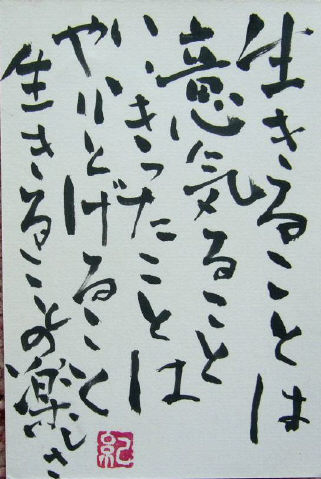 生きることは
意気ること
いいきったことは
やりとげること
生きることの楽しさ
紀